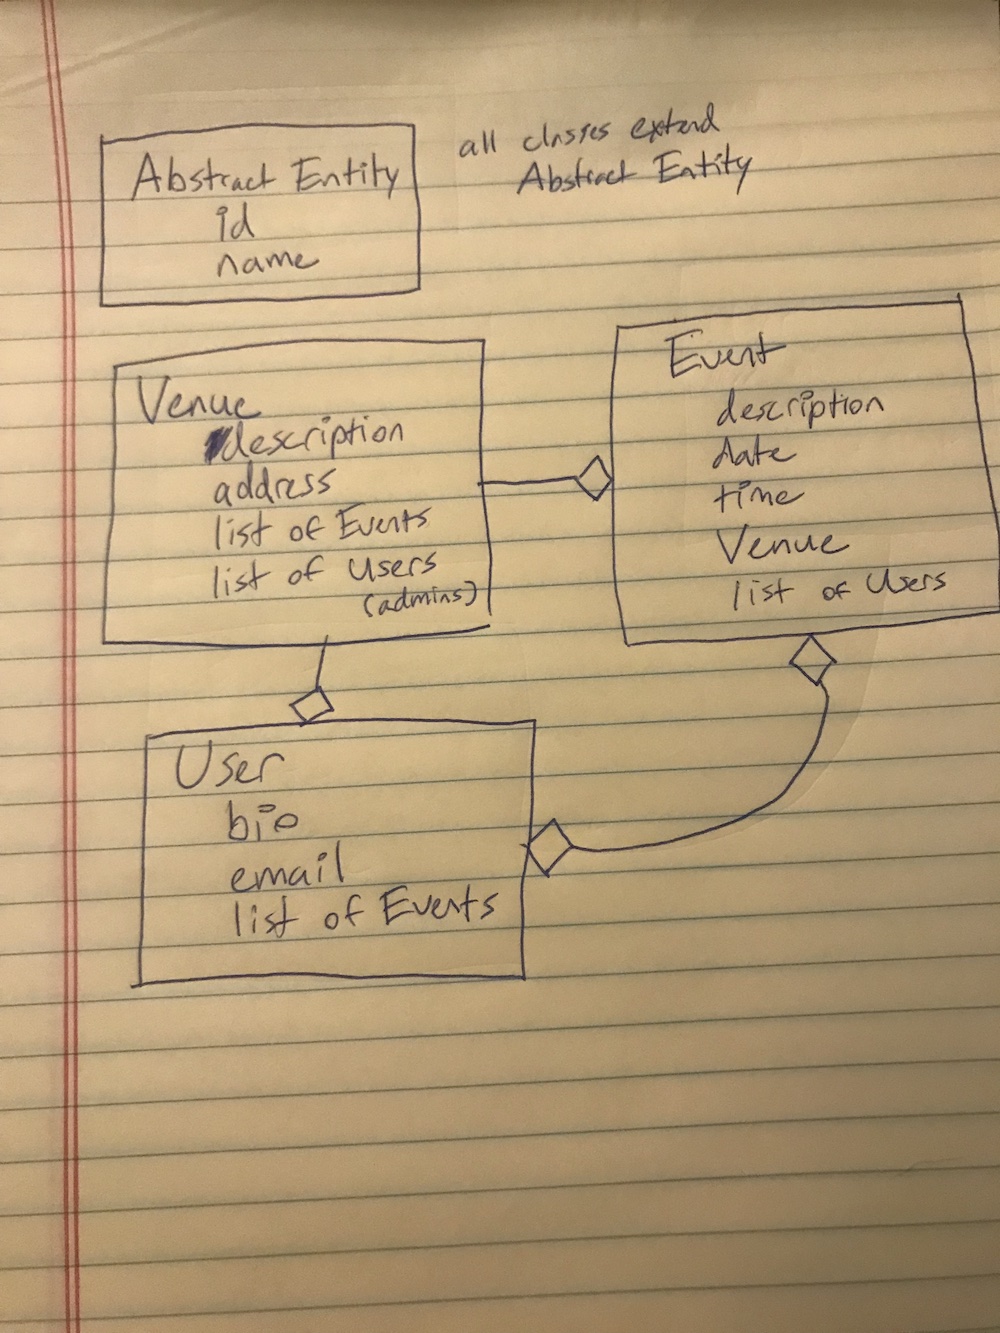 Abstract Entity
id
name
all classes extend
Abstract Entity
Venue
description
address
list of Events
list of Users
(admins)
Event
description
date
time
Venue
list of Users
User
bio
email
list of Events